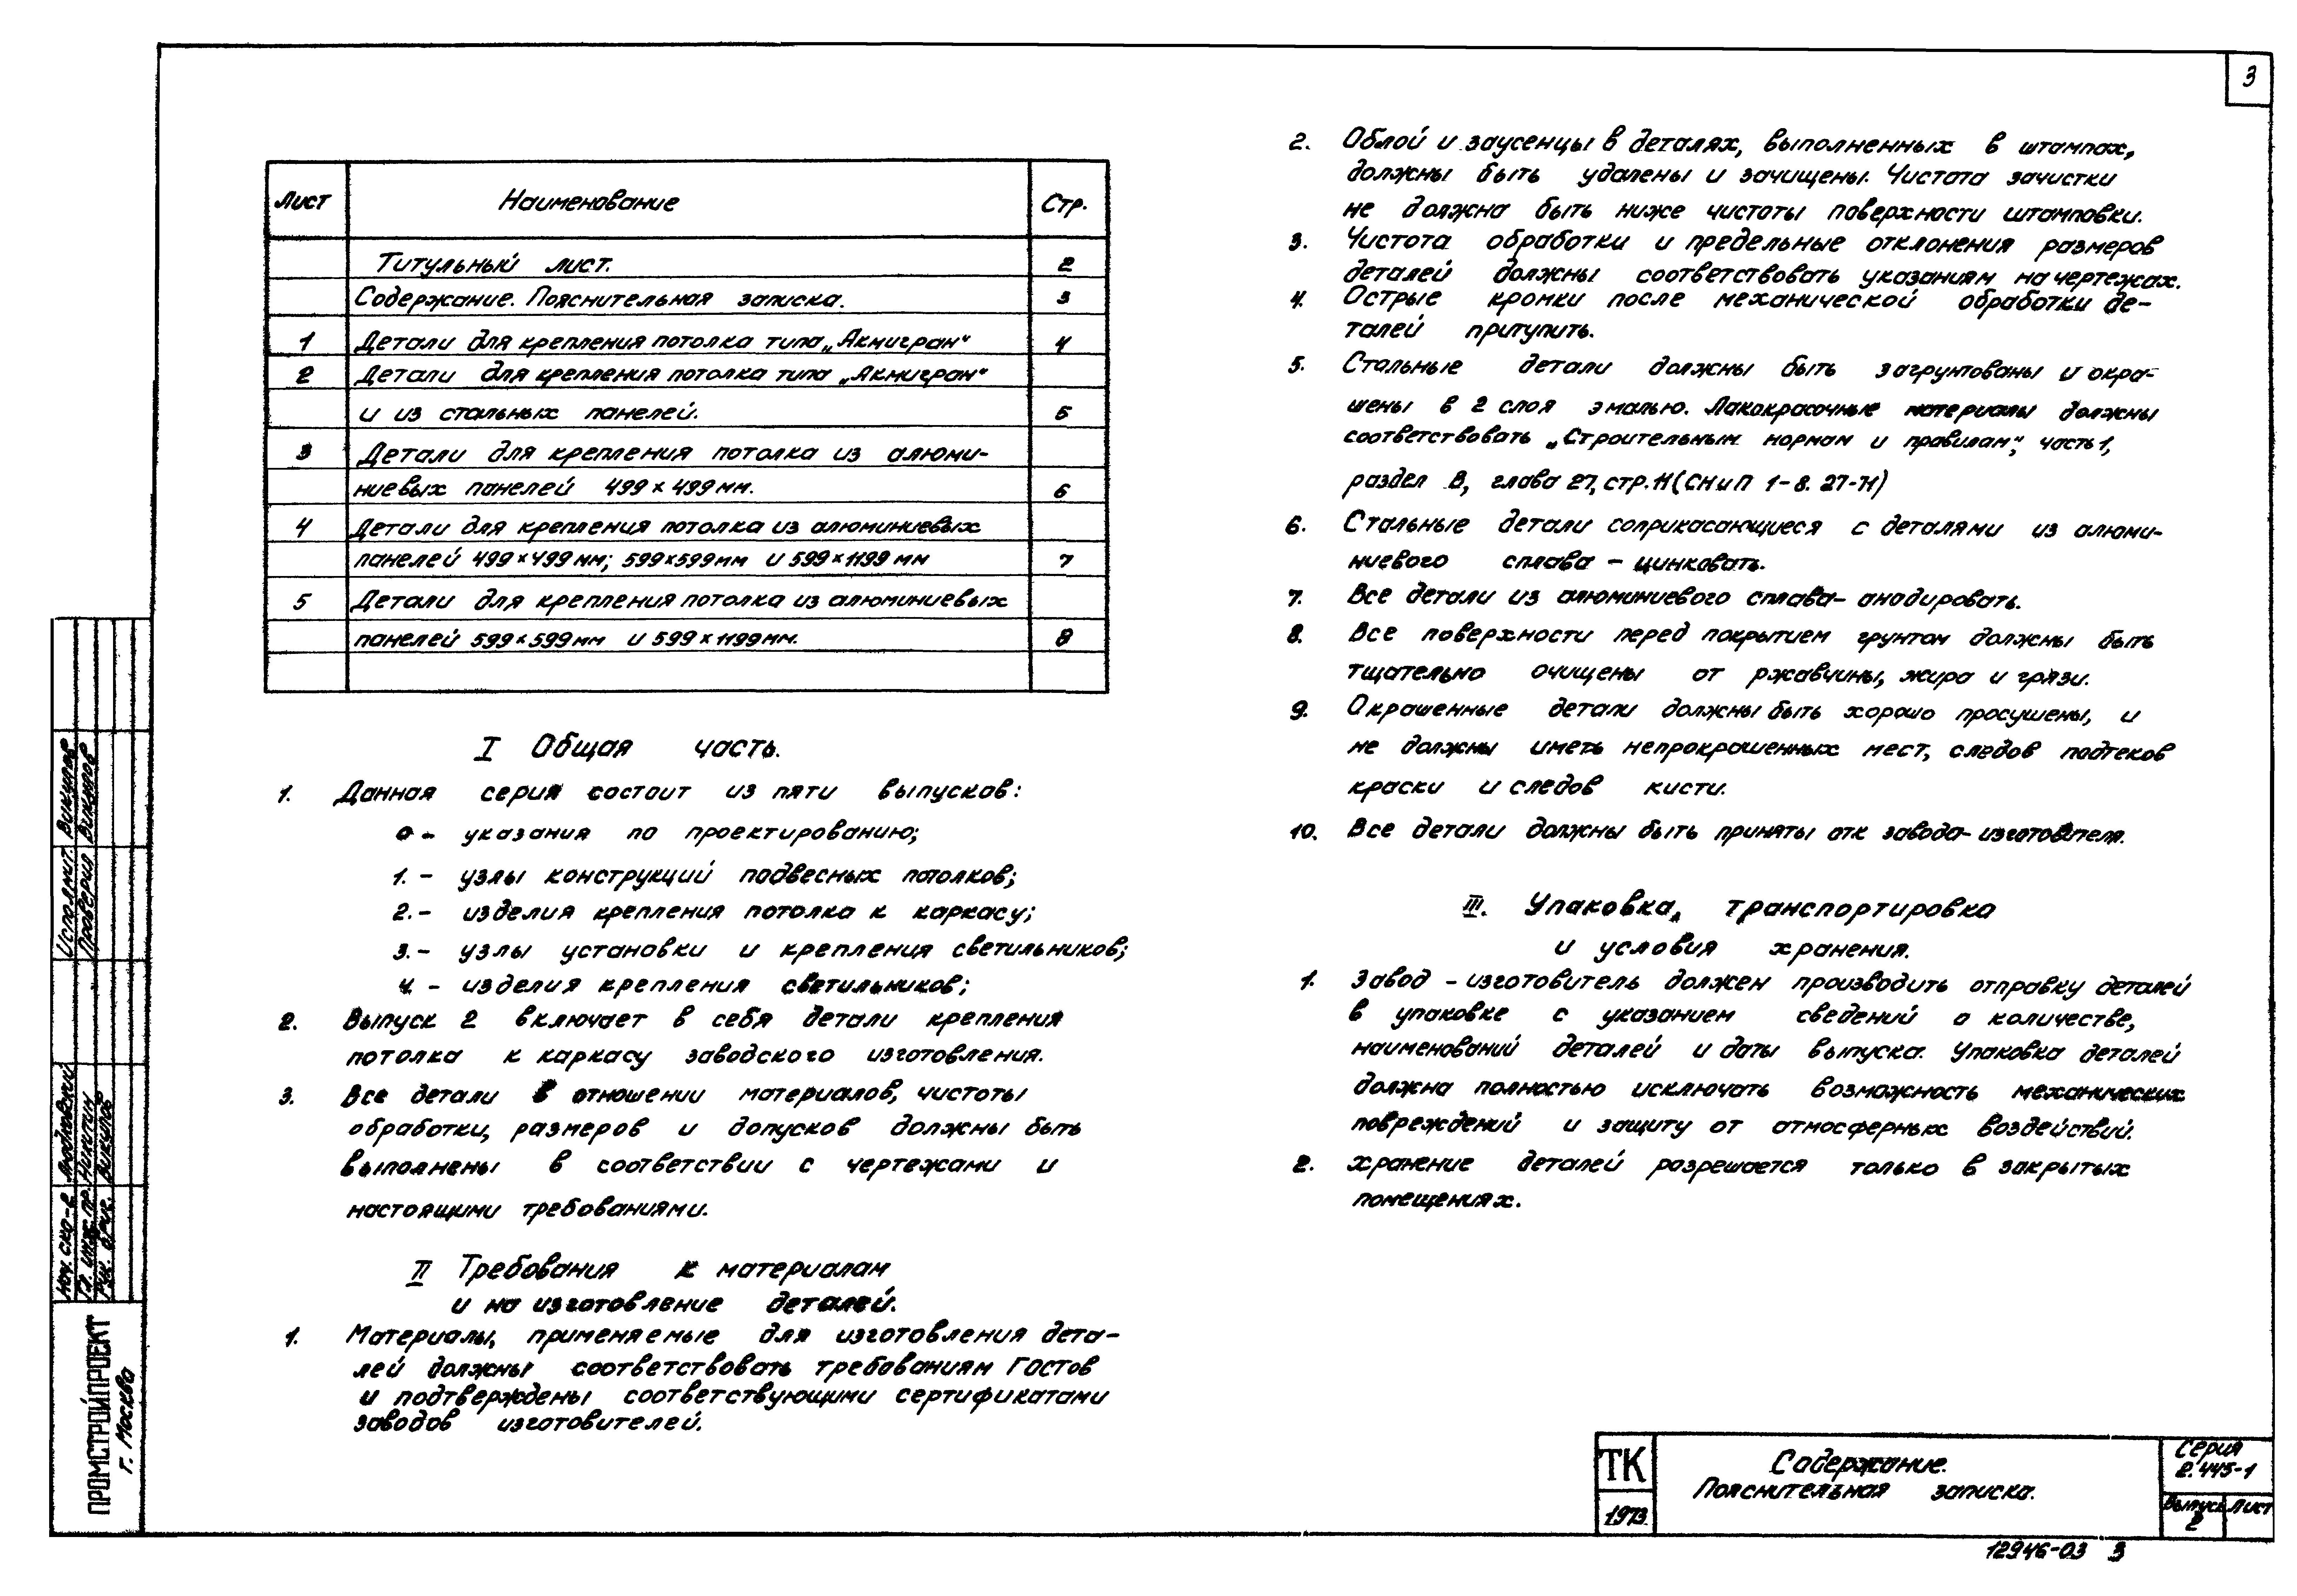 3
Лист Наименование Стр.
Титульный лист. 2
Содержание. Пояснительная записка. 3
1 Детали для крепления потолка типа „Акмигран" 4
2 Детали для крепления потолка типа „Акмигран"
и из стальных панелей. 5
3 Детали для крепления потолка из алюми-
ниевых панелей 499×499мм. 6
4 Детали для крепления потолка из алюминиевых
панелей 499×499мм; 599×599мм и 599×1199 мм 7
5 Детали для крепления потолка из алюминиевых
панелей 599×599мм и 599×1199мм. 8
I Общая часть.
1. Данная серия состоит из пяти выпусков:
0 - указания по проектированию;
1. - узлы конструкций подвесных потолков;
2. - изделия крепления потолка к каркасу;
3. - узлы установки и крепления светильников;
4. - изделия крепления светильников;
2. Выпуск 2 включает в себя детали крепления
потолка к каркасу заводского изготовления.
3. Все детали в отношении материалов, чистоты
обработки, размеров и допусков должны быть
выполнены в соответствии с чертежами и
настоящими требованиями.
II Требования к материалам
и на изготовление деталей.
1. Материалы, применяемые для изготовления дета-
лей должны соответствовать требованиям ГОСТов
и подтверждены соответствующими сертификатами
заводов изготовителей.
2. Облой и заусенцы в деталях, выполненных в штампах,
должны быть удалены и зачищены. Чистота зачистки
не должна быть ниже чистоты поверхности штамповки.
3. Чистота обработки и предельные отклонения размеров
деталей должны соответствовать указаниям на чертежах.
4. Острые кромки после механической обработки де-
талей притупить.
5. Стальные детали должны быть загрунтованы и окра-
шены в 2 слоя эмалью. Лакокрасочные материалы должны
соответствовать „Строительным нормам и правилам", часть 1,
раздел В, глава 27, стр. 11 (СНиП 1-В. 27-71)
6. Стальные детали соприкасающиеся с деталями из алюми-
ниевого сплава - цинковать.
7. Все детали из алюминиевого сплава - анодировать.
8. Все поверхности перед покрытием грунтом должны быть
тщательно очищены от ржавчины, жира и грязи.
9. Окрашенные детали должны быть хорошо просушены, и
не должны иметь непрокрашенных мест, следов подтеков
краски и следов кисти.
10. Все детали должны быть приняты отк завода-изготовителя.
III. Упаковка, транспортировка
и условия хранения.
1. Завод - изготовитель должен производить отправку деталей
в упаковке с указанием сведений о количестве,
наименований деталей и даты выпуска. Упаковка деталей
должна полностью исключать возможность механических
повреждений и защиту от атмосферных воздействий.
2. Хранение деталей разрешается только в закрытых
помещениях.
Исполнит. Викулов
Проверил Викулов
Нач. СКО-2
Гл. инж. пр. Никитин
Рук. бриг. Викулов
ПРОМСТРОЙПРОЕКТ
г. Москва
ТК
1973
Содержание.
Пояснительная записка.
Серия
2.445-1
Выпуск Лист
2
12946-03 3